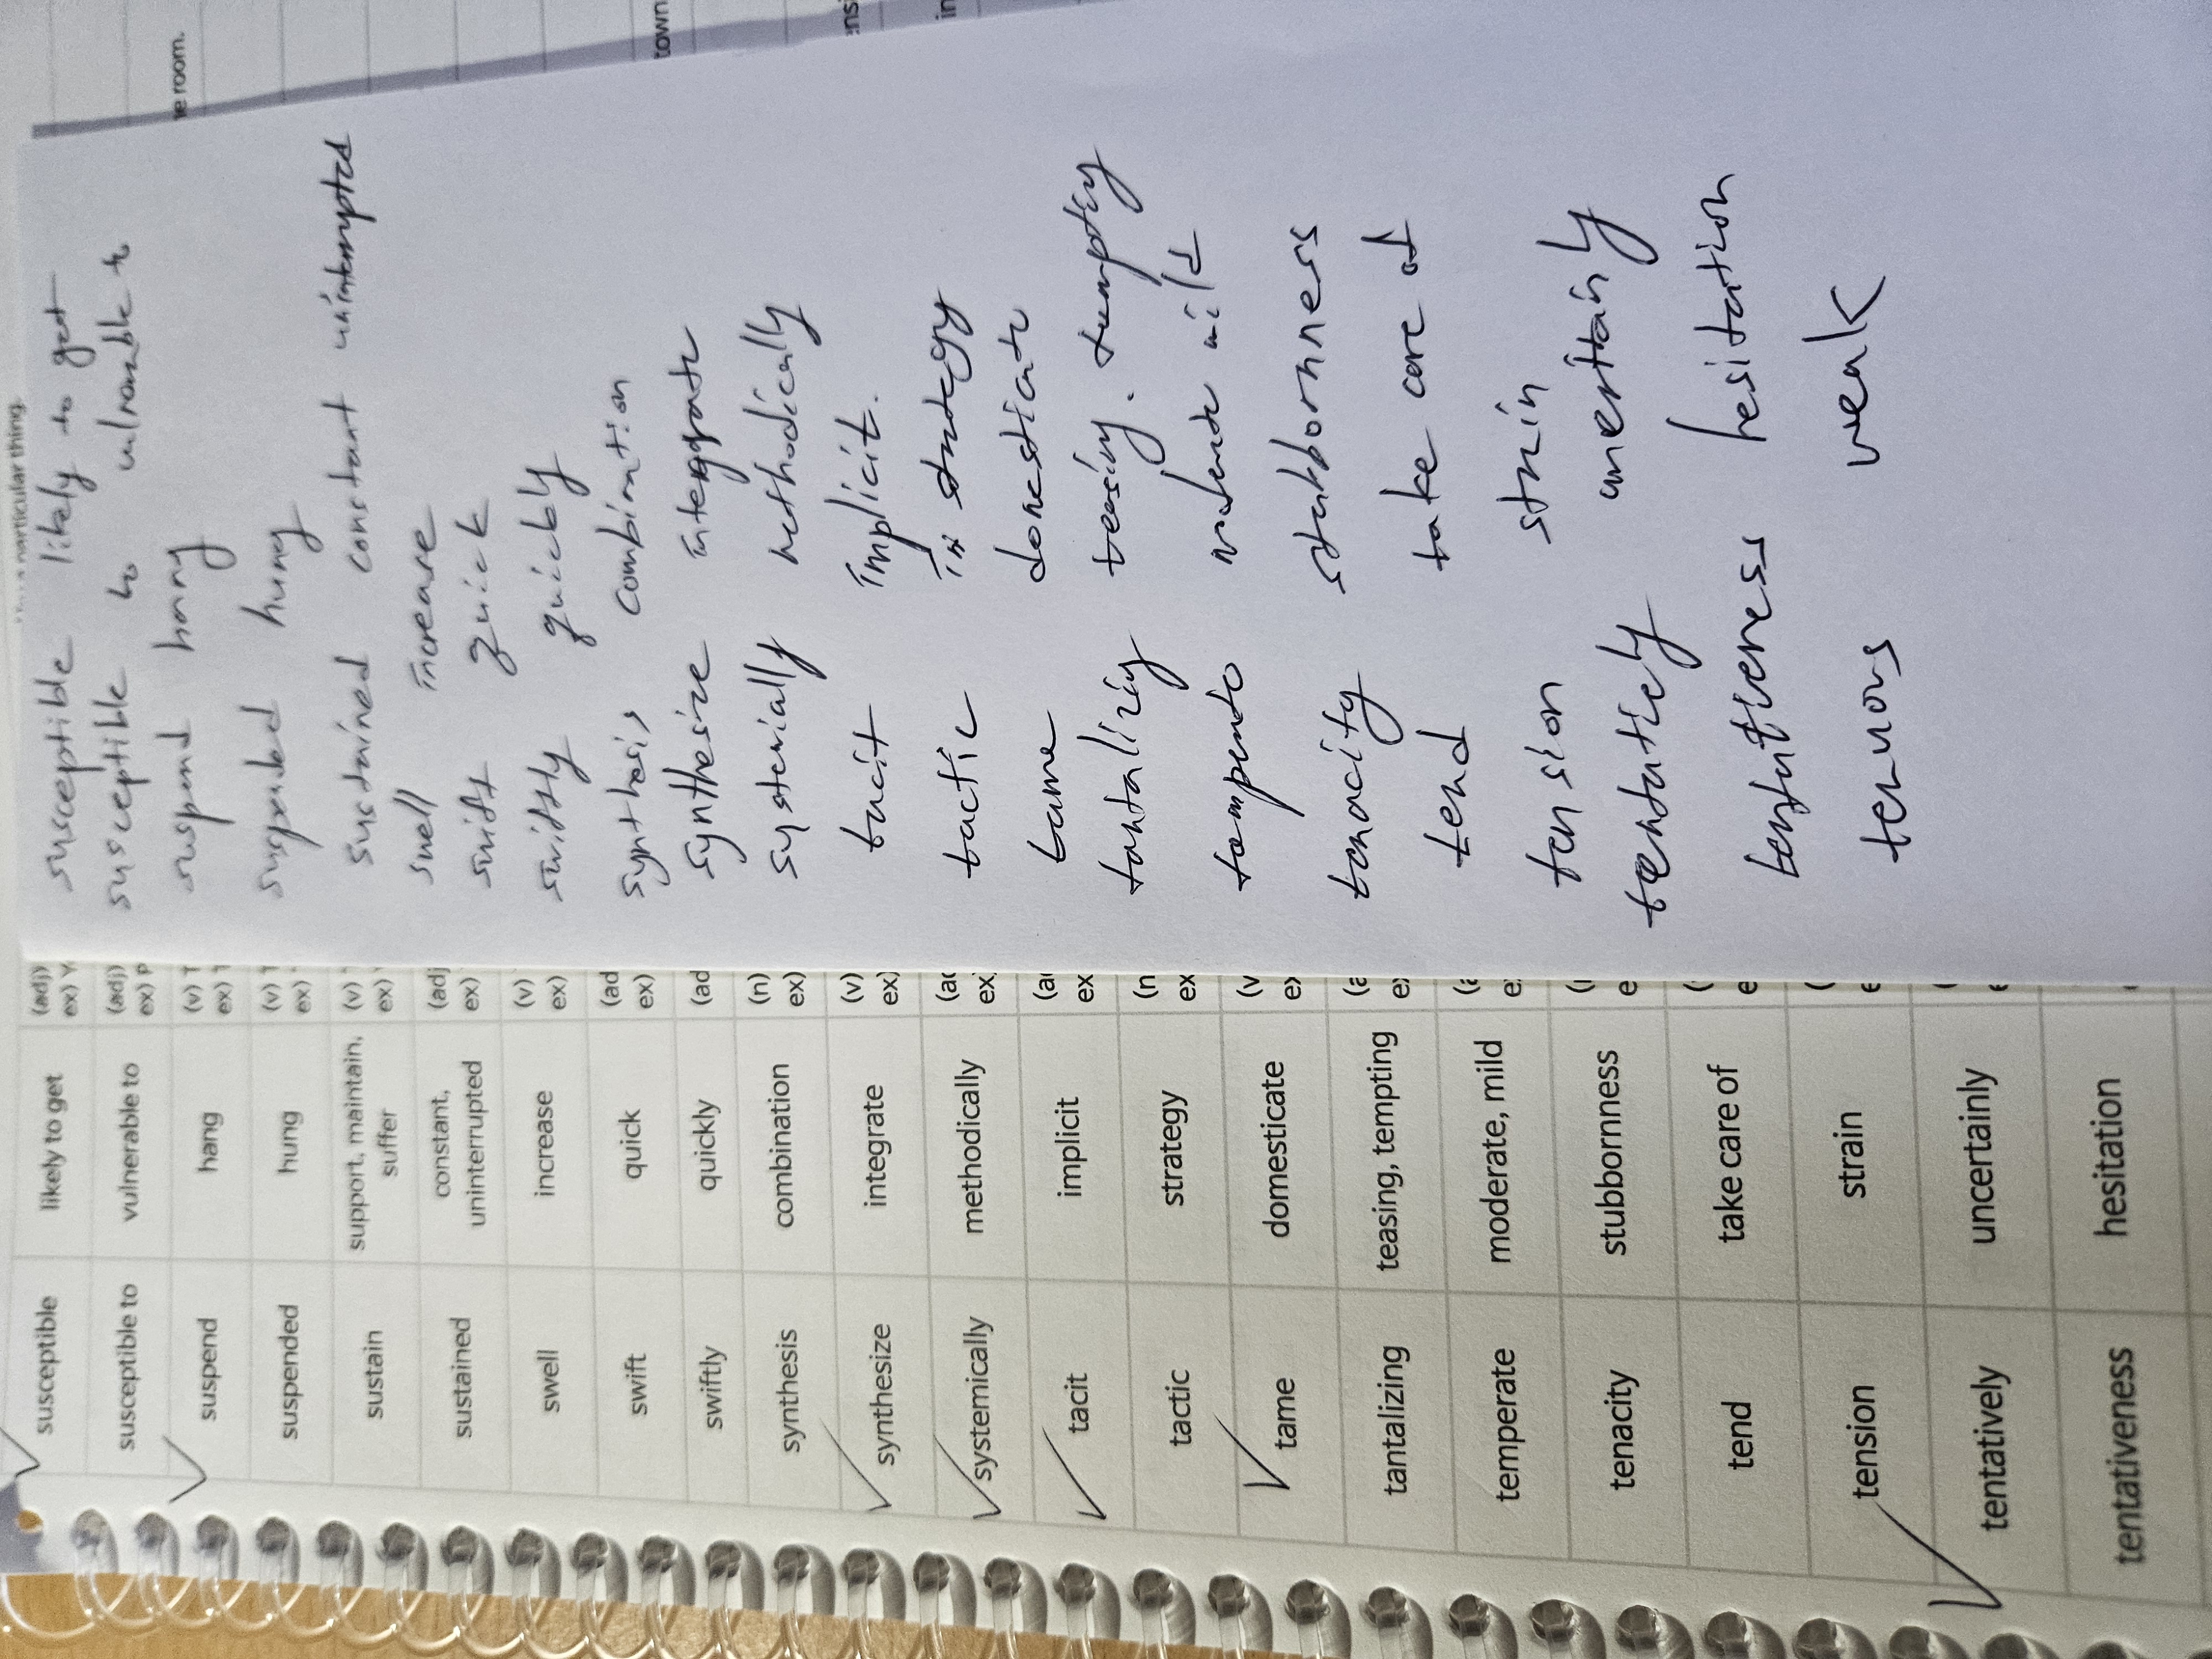 susceptible likely to get (adj)
ex)
susceptible to vulnerable to (adj)
ex)
suspend hang (v)
ex)
suspended hung (v)
ex)
sustain support, maintain, suffer (v)
ex)
sustained constant, uninterrupted (adj
ex)
swell increase (v)
ex)
swift quick (ad
ex)
swiftly quickly (ad
synthesis combination (n)
ex)
synthesize integrate (v)
ex)
systemically methodically
ex
tacit implicit
ex
tactic strategy (n
ex
tame domesticate (v
tantalizing teasing, tempting
temperate moderate, mild
tenacity stubbornness
tend take care of
tension strain
tentatively uncertainly
tentativeness hesitation
particular thing.
susceptible likely to get
susceptible to vulnerable to
suspend hang
suspended hung
sustained constant uninterrupted
swell increase
swift quick
swiftly quickly
synthesis combination
synthesize integrate
methodically
tacit implicit.
tactic strategy
tame domesticate
teasing.
mild
tenacity stubbornness
tend take care of
tension strain
tentatively uncertainly
tentativeness hesitation
tenuous weak
room.
town